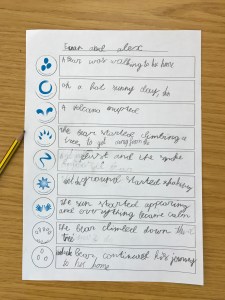 and alex
A bear was walking to his home
on a hot sunny day, the
A volcano erupted
the bear started climbing a
tree to get away from the
burst and the
ground started shaking
the sun started appearing
and everything became calm
the bear climbed down the
tree
bear continued his journey
to his home